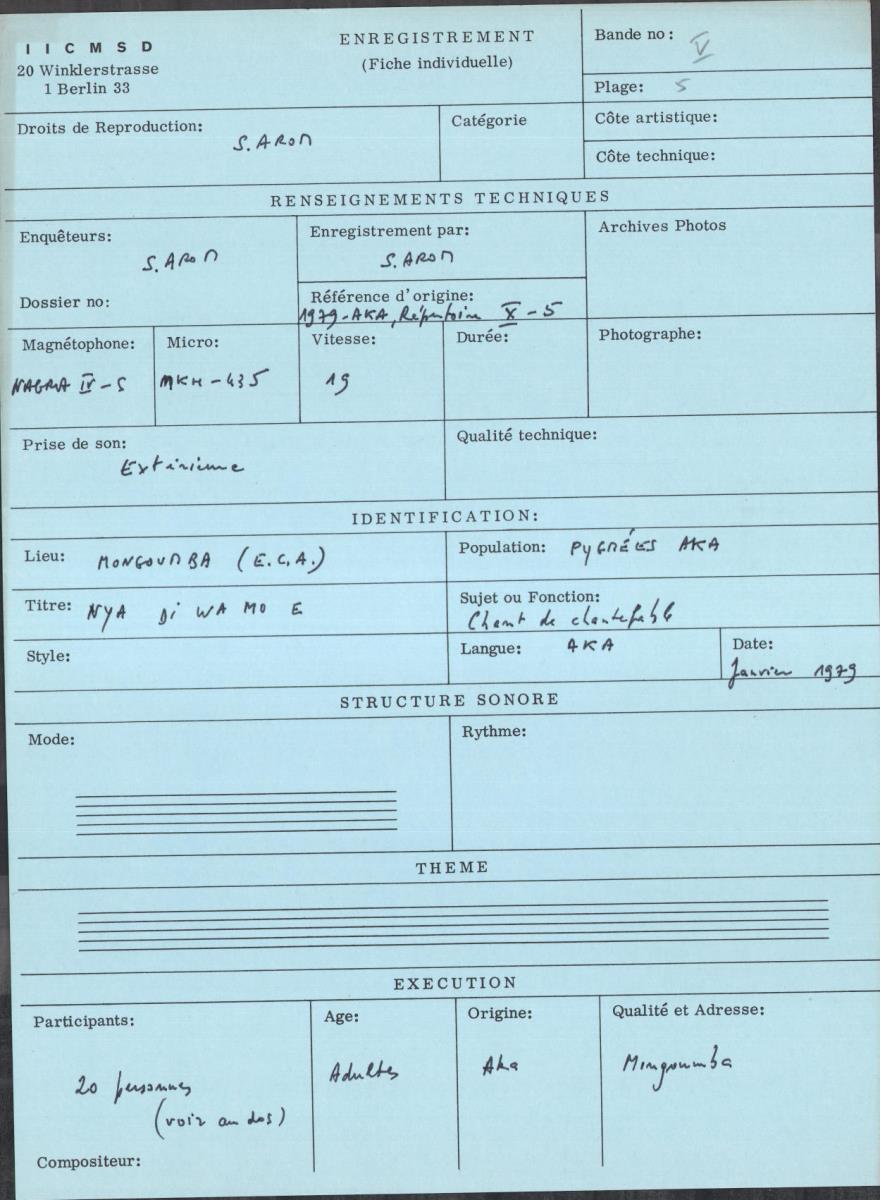 I I C M S D
20 Winklerstrasse
1 Berlin 33
ENREGISTREMENT
(Fiche individuelle)
Bande no: V
Plage: 5
Droits de Reproduction:
S. AROM
Catégorie
Côte artistique:
Côte technique:
RENSEIGNEMENTS TECHNIQUES
Enquêteurs:
S. AROM
Dossier no:
Enregistrement par:
S. AROM
Référence d'origine:
1979-AKA, Répertoire X - 5
Archives Photos
Magnétophone:
NAGRA IV - S
Micro:
MKH - 435
Vitesse:
19
Durée:
Photographe:
Prise de son:
Extérieure
Qualité technique:
IDENTIFICATION:
Lieu: MONGOUMBA (E.C.A.)
Population: PYGMÉES AKA
Titre: NYA Di WA MO E
Sujet ou Fonction:
Chant de chantefable
Style:
Langue: AKA
Date:
Janvier 1979
STRUCTURE SONORE
Mode:
Rythme:
THEME
EXECUTION
Participants:
20 personnes
(voir au dos)
Compositeur:
Age:
Adultes
Origine:
Aka
Qualité et Adresse:
Mongoumba